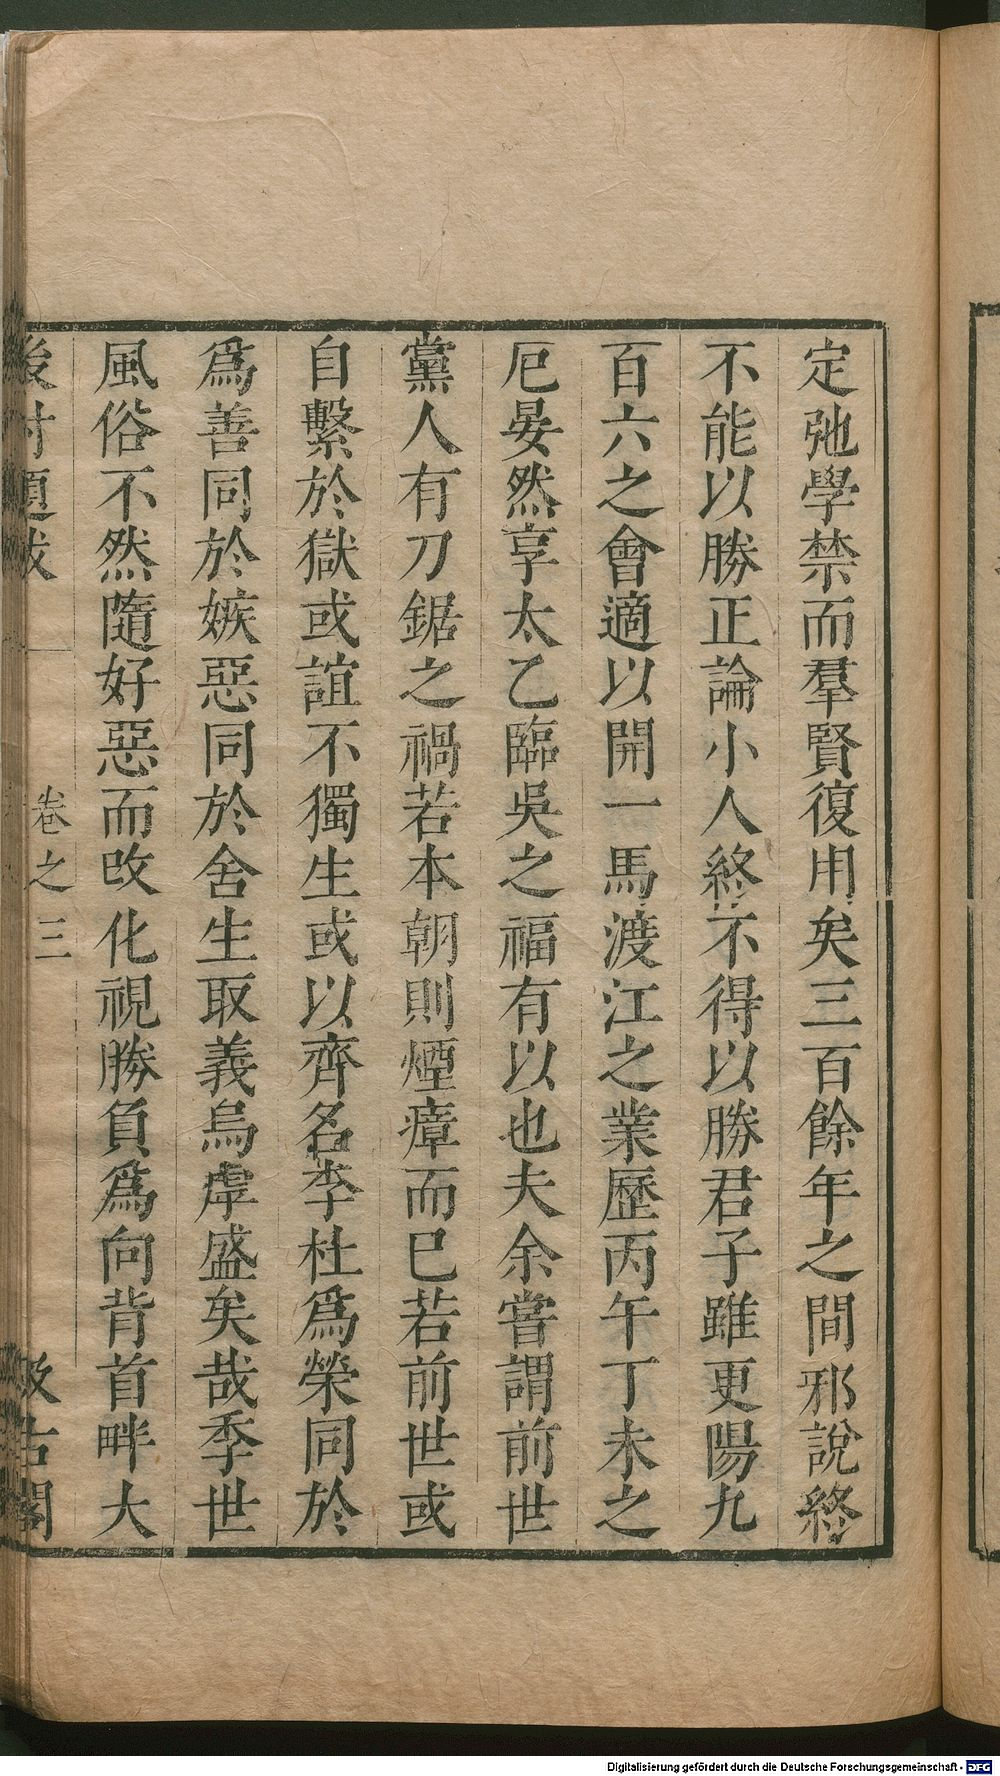 定弛學禁而羣賢復用矣三百餘年之間邪說終
不能以勝正論小人終不得以勝君子雖更陽九
百六之會適以開一馬渡江之業歷丙午丁未之
厄晏然享太乙臨吳之福有以也夫余嘗謂前世
黨人有刀鋸之禍若本朝則煙瘴而已若前世或
自繫於獄或誼不獨生或以齊名李杜爲榮同於
爲善同於嫉惡同於舍生取義烏虖盛矣哉季世
風俗不然隨好惡而改化視勝負爲向背首畔大
後村題跋 卷之三 汲古閣
Digitalisierung gefördert durch die Deutsche Forschungsgemeinschaft - DFG